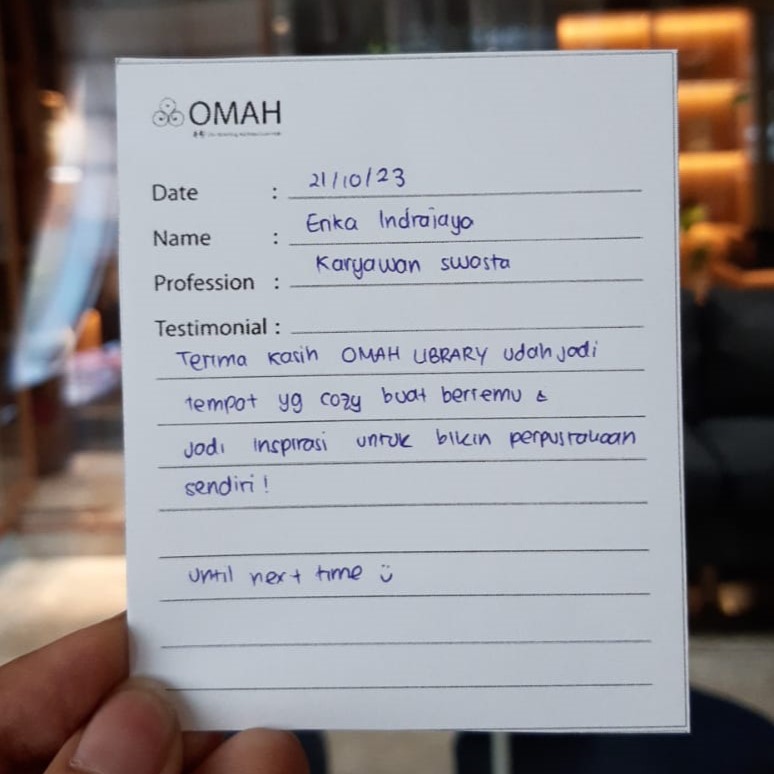 OMAH
Date : 21/10/23
Name : Erika Indrajaya
Profession : Karyawan swasta
Testimonial :
Terima kasih OMAH LIBRARY udah jadi
tempat yg cozy buat bertemu &
jadi inspirasi untuk bikin perpustakaan
sendiri!
until next time